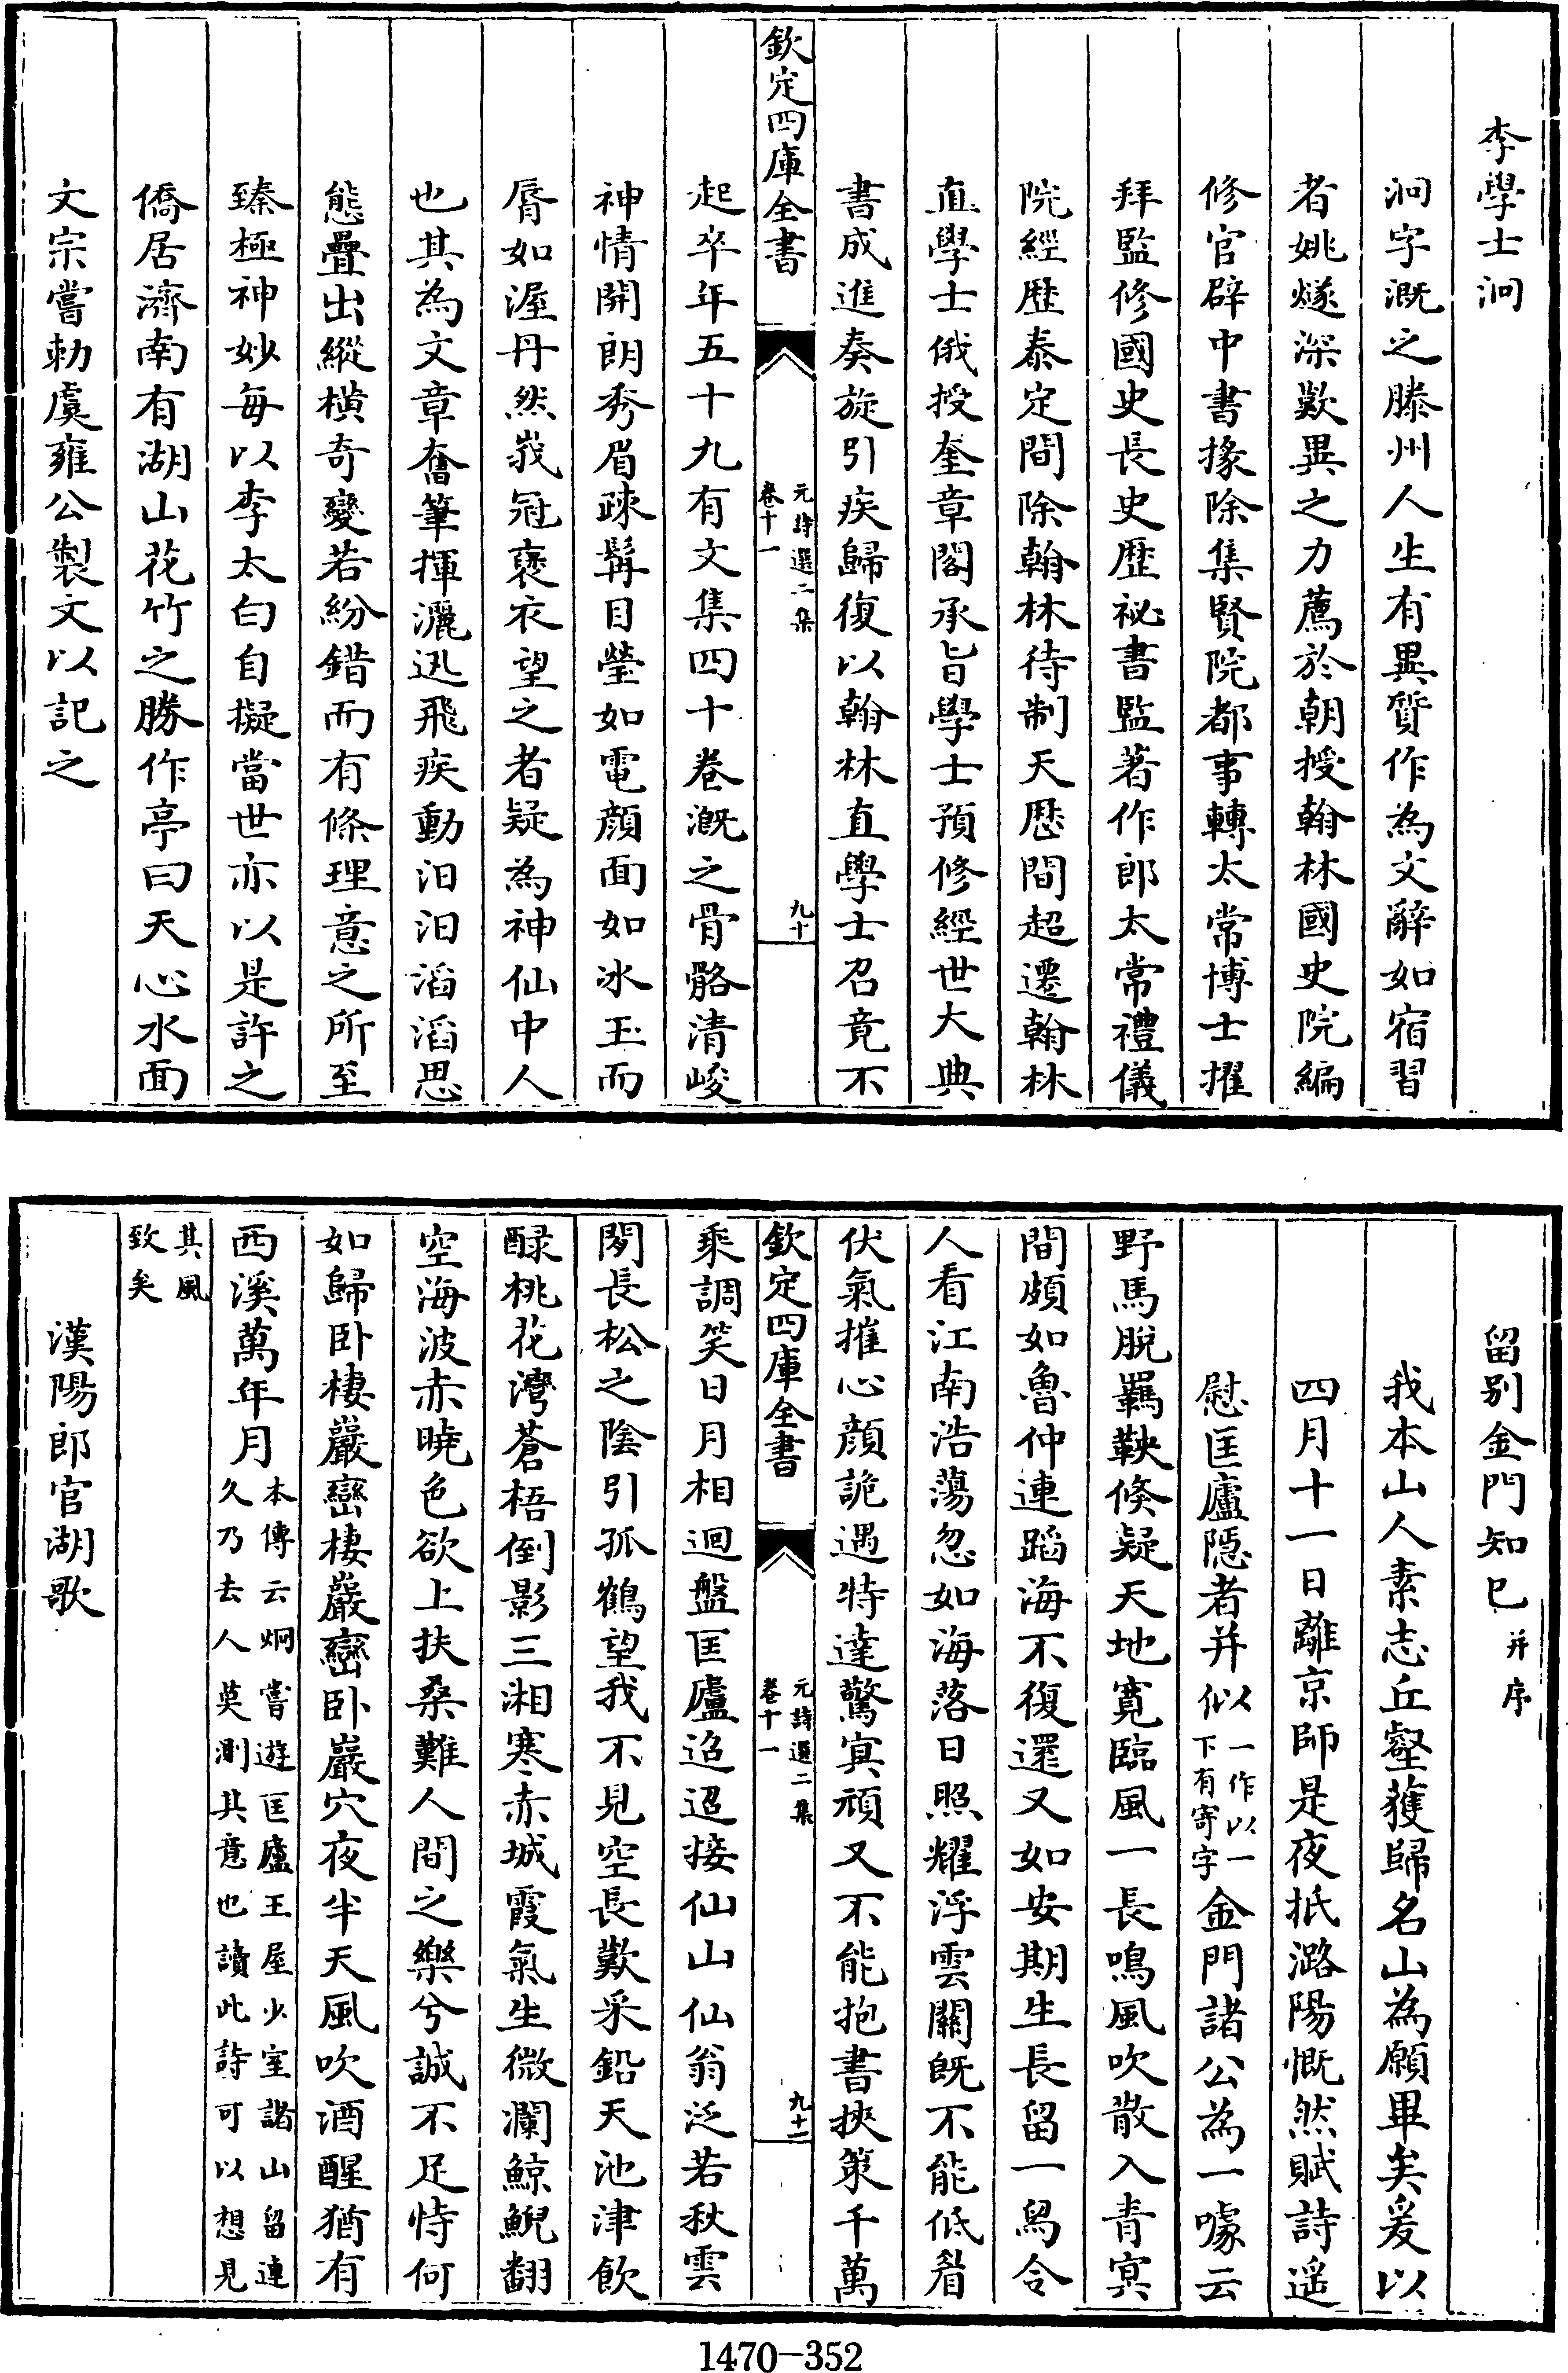 李學士泂
泂字溉之滕州人生有異質作為文辭如宿習
者姚燧深歎異之力薦於朝授翰林國史院編
修官辟中書掾除集賢院都事轉太常博士擢
拜監修國史長史歴祕書監著作郎太常禮儀
院經歴泰定間除翰林待制天厯間超遷翰林
直學士俄授奎章閣承旨學士預修經世大典
書成進奏旋引疾歸復以翰林直學士召竟不
欽定四庫全書
元詩選二集
卷十一
九十
起卒年五十九有文集四十卷溉之骨骼清峻
神情開朗秀眉疎髯目瑩如電顔面如冰玉而
脣如渥丹然峩冠褒衣望之者疑為神仙中人
也其為文章奮筆揮灑迅飛疾動汨汨滔滔思
態疊出縱橫奇變若紛錯而有條理意之所至
臻極神妙每以李太白自擬當世亦以是許之
僑居濟南有湖山花竹之勝作亭曰天心水面
文宗嘗勅虞雍公製文以記之
留别金門知已并序
我本山人素志丘壑獲歸名山為願畢矣爰以
四月十一日離京師是夜抵潞陽慨然賦詩遥
慰匡廬隠者并似以一作以一下有寄字金門諸公為一噱云
野馬脱羈鞅倐疑天地寛臨風一長鳴風吹散入青冥
間頗如魯仲連蹈海不復還又如安期生長留一舄令
人看江南浩蕩忽如海落日照耀浮雲關既不能低眉
伏氣摧心顔詭遇特達驚㝠頑又不能抱書挾策千萬
欽定四庫全書
元詩選二集
卷十一
九十一
乘調笑日月相迴盤匡廬迢迢接仙山仙翁泛若秋雲
閒長松之陰引孤鶴望我不見空長歎采鉛天池津飲
醁桃花灣蒼梧倒影三湘寒赤城霞氣生微瀾鯨鯢翻
空海波赤曉色欲上扶桑難人間之樂兮誠不足恃何
如歸卧棲巖巒棲巖巒卧巖穴夜半天風吹酒醒猶有
西溪萬年月本傳云炯嘗遊匡廬王屋少室諸山留連久乃去人莫測其意也讀此詩可以想見
其風致矣
漢陽郎官湖歌
1470-352